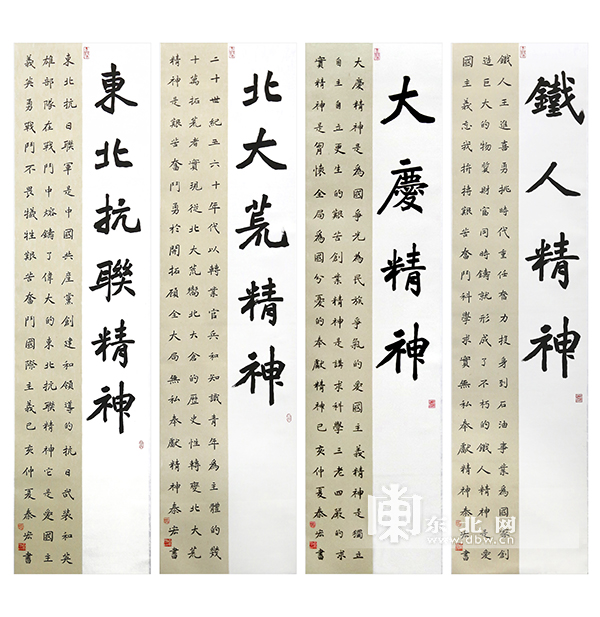 鐵人精神
鐵人王進喜勇挑時代重任奮力投身到石油事業為國家創
造巨大的物質財富同時鑄就形成了不朽的鐵人精神是愛
國主義忘我拼搏艱苦奮鬥科學求實無私奉獻精神己亥仲夏泰宏書
大慶精神
大慶精神是為國爭光為民族爭氣的愛國主義精神是獨立
自主自立更生的艱苦創業精神是講求科學三老四嚴的求
實精神是胸懷全局為國分憂的奉獻精神己亥仲夏泰宏書
北大荒精神
二十世紀五六十年代以轉業官兵和知識青年為主體的幾
十萬拓荒者實現從北大荒嚮北大倉的歷史性轉變北大荒
精神是艱苦奮鬥勇於開拓顧全大局無私奉獻精神泰宏書
東北抗聯精神
東北抗日聯軍是中國共產黨創建和領導的抗日武裝和英
雄部隊在戰鬥中熔鑄了偉大的東北抗聯精神它是愛國主
義英勇戰鬥不畏犧牲艱苦奮鬥國際主義己亥仲夏泰宏書
东北网
www.dbw.cn